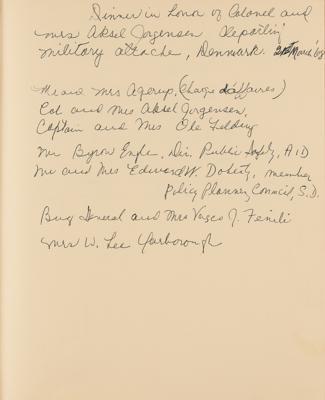 Dinner in honor of Colonel and
Mrs Aksel Jorgensen departing
military attache, Denmark. March '68
Mr and Mrs Agerup, (Charge d'affaires)
Col and Mrs Aksel Jorgensen,
Captain and Mrs Ole Fidding
Mr Byron Engle, Dir. Public Safety, AID
Mr and Mrs Edward W. Doherty, member
Policy Planning Council, S.D.
Brig General and Mrs Vasco J. Fenili
Mrs W. Lee Yarborough